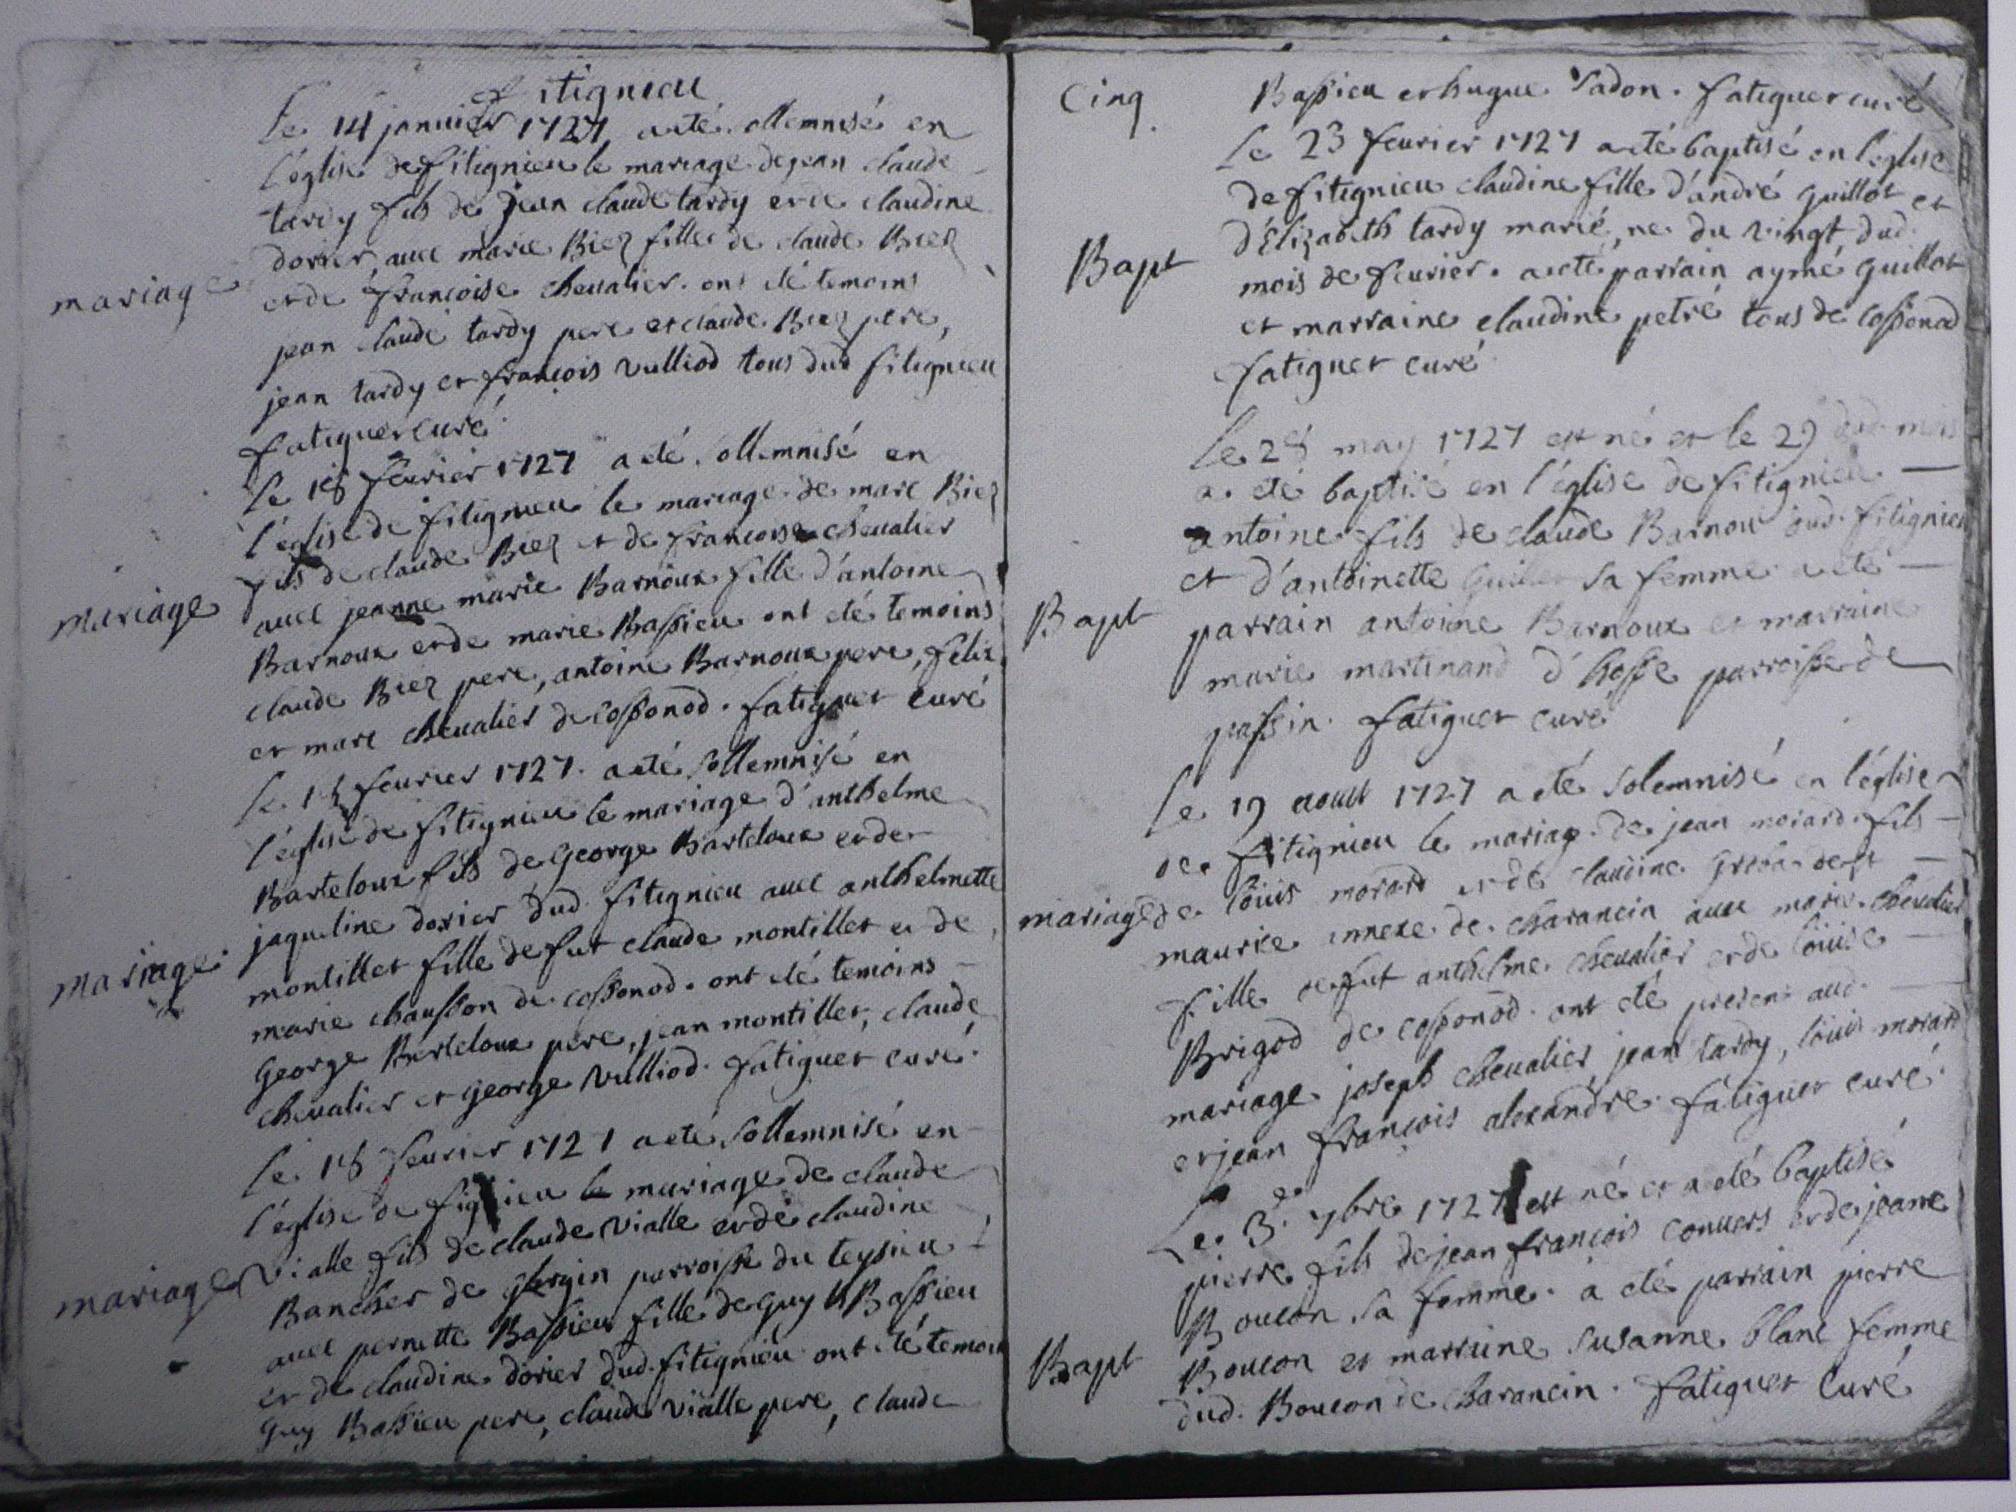 fitignieu
Le 14 janvier 1727 a eté sollemnisé en
l'église de fitignieu le mariage de jean claude
tardy fils de jean claude tardy et de claudine
dorier, avec marie Biez fille de claude Biez
mariage
et de françoise chevalier. ont eté temoins
jean claude tardy pere et claude Biez pere,
jean tardy et françois vulliod tous dud fitignieu
fatiguet curé.
Le 18 fevrier 1727 a eté sollemnisé en
l'église de fitignieu le mariage de marc Biez
fils de claude Biez et de francoise chevalier
mariage
avec jeanne marie Barnoux fille d'antoine
Barnoux et de marie Bassieu ont eté temoins
claude Biez pere, antoine Barnoux pere, felix
et marc chevalier de cossonod. fatiguet curé
Le 18 fevrier 1727. a eté sollemnisé en
l'église de fitignieu le mariage d'anthelme
Barteloux fils de George Barteloux et de
jaqueline dorier dud. fitignieu avec anthelmette
mariage.
montillet fille de fut claude montillet et de
marie chausson de cossonod. ont eté temoins
George Berteloux pere, jean montillet, claude
chevalier et George vulliod. fatiguet curé.
Le 18 fevrier 1727 a eté sollemnisé en
l'église de fig ieu le mariage de claude
mariage
vialle fils de claude vialle et de claudine
Bancher de parroisse du teysieu
avec pernette Bassieu fille de Guy Bassieu
et de claudine dorier dud. fitignieu ont eté temoin
Guy Bassieu pere, claude vialle pere, claude
Cinq
Bassieu et hugue Sadon. fatiguet curé
Le 23 fevrier 1727 a eté baptisé en l'église
de fitignieu claudine fille d'andré Guillot et
d'Elizabeth tardy marié, ne du vingt dud.
Bapt
mois de fevrier. a eté parrain aymé Guillot
et marraine claudine petré tous de cossonod
fatiguet curé
Le 28 may 1727 est né et le 29 dud. mois
a eté baptisé en l'église de fitignieu
antoine fils de claude Barnou dud. fitignieu
et d'antoinette Guillet sa femme a eté
Bapt
parrain antoine Barnoux et marraine
marie martinand d'hosse parroisse de
passin. fatiguet curé
Le 19 aoust 1727 a eté solemnisé en l'église
de fitignieu le mariag de jean morard fils
mariage
de louis morard et de claudine de st
maurice annexe de charancin avec marie chevalier
fille de fut anthelme chevalier et de louise
Brigod de cossonod. ont eté présent aud.
mariage joseph chevalier, jean tardy, louis morard
et jean françois alexandre. fatiguet curé.
Le 3e. 7bre 1727 est né et a eté baptisé
pierre fils de jean françois convers et de jeanne
Boucon sa femme. a eté parrain pierre
Bapt
Boucon et marraine Susanne blanc femme
dud. Boucon de charancin. fatiguet curé